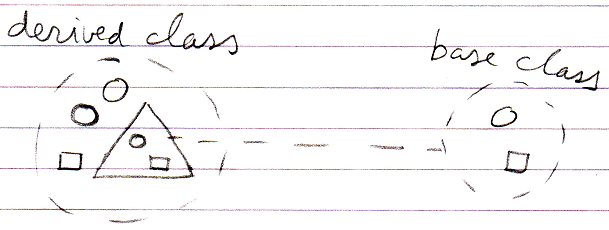 derived class
base class